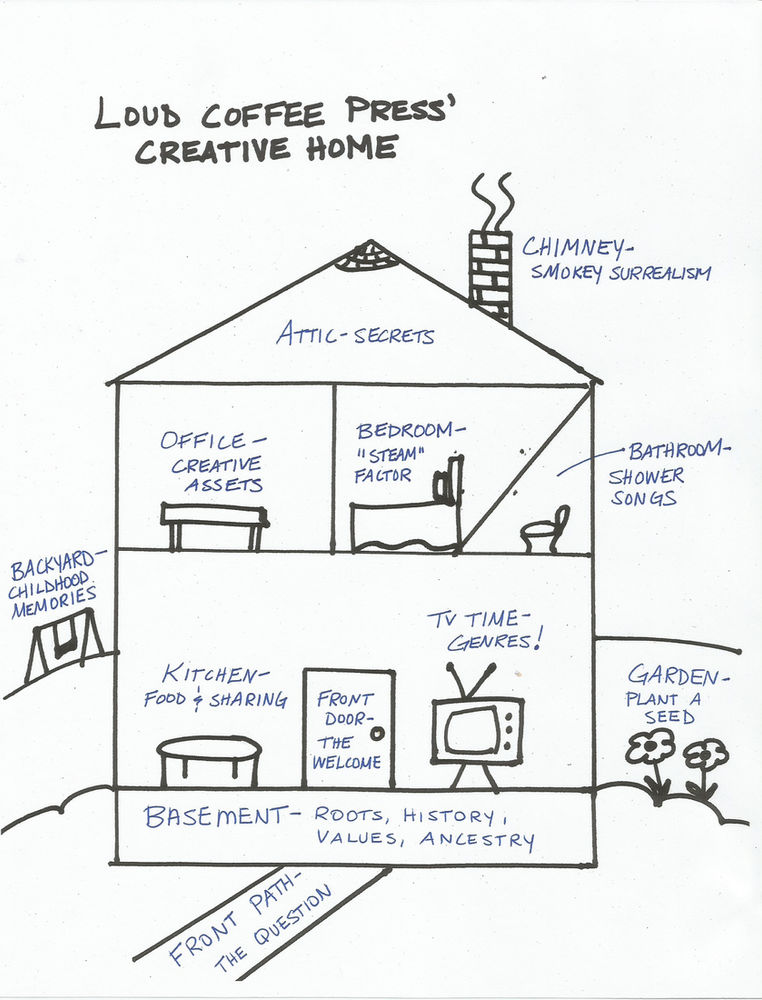 LOUD COFFEE PRESS'
CREATIVE HOME
CHIMNEY-
SMOKEY SURREALISM
ATTIC-SECRETS
OFFICE-
CREATIVE
ASSETS
BEDROOM-
"STEAM"
FACTOR
BATHROOM-
SHOWER
SONGS
BACKYARD-
CHILDHOOD
MEMORIES
TV TIME-
GENRES!
KITCHEN-
FOOD & SHARING
FRONT
DOOR-
THE
WELCOME
GARDEN-
PLANT A
SEED
BASEMENT- ROOTS, HISTORY,
VALUES, ANCESTRY
FRONT PATH-
THE QUESTION